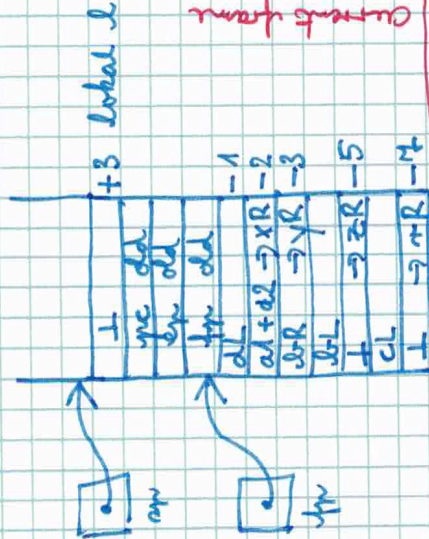 Current frame
+3 lokal l
⊥
pc old
bp old
fp old
dL -1
a1 + a2 → xR -2
bR → yR -3
bL
⊥ → zR -5
cL
⊥ → rR -7
sp
fp